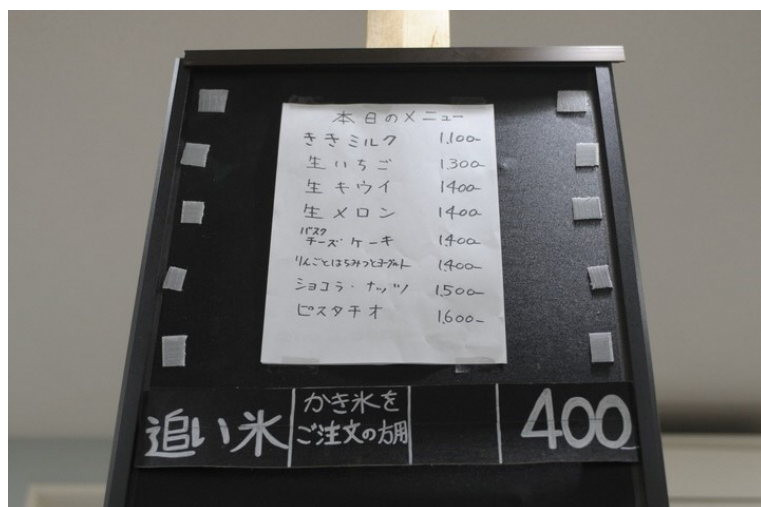 本日のメニュー
ききミルク 1,100-
生いちご 1,300-
生キウイ 1,400-
生メロン 1,400-
バスク
チーズケーキ 1,400-
りんごとはちみつとヨーグルト 1,400-
ショコラ・ナッツ 1,500-
ピスタチオ 1,600-
追い氷 かき氷を
ご注文の方用 400-